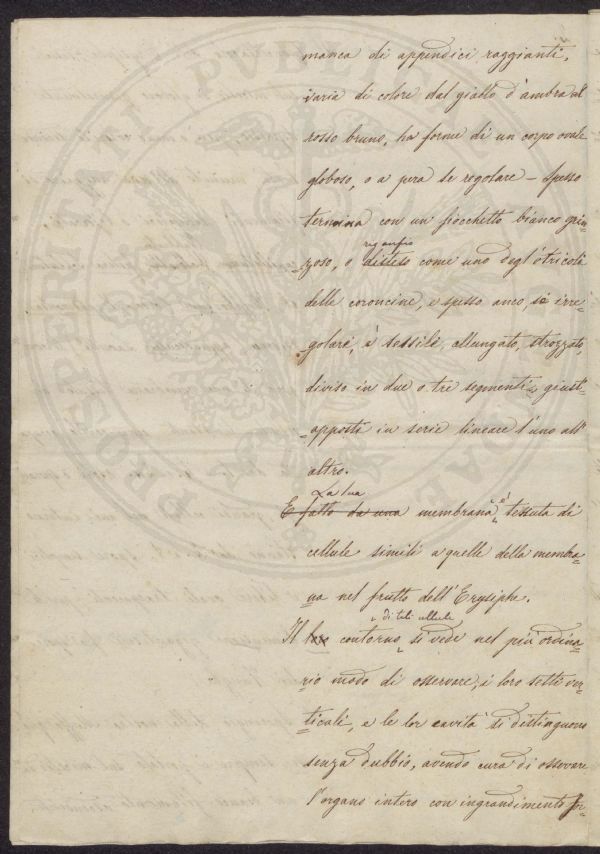 manca di appendici raggianti,
varia di colore dal giallo d'ambra al
rosso bruno, ha forme di un corpo ovale
globoso, o a pera se regolare – spesso
termina con un fiocchetto bianco grin=
=zoso, o rigonfio disteso come uno degl'otricoli
delle coroncine, e spesso anco, se irre=
=golare, è sessile, allungato, strozzato,
diviso in due o tre segmenti giust'
=apposti in serie lineare l'uno all'
altro.
La sua
E fatto da una membrana è tessuta di
cellule simili a quelle della membra=
=na nel frutto dell'Erysiphe.
di tali cellule
Il lor contorno si vede nel più ordina=
=rio modo di osservare, i loro setti ver=
=ticali, e le lor cavità si distinguono
senza dubbio, avendo cura di osservare
l'organo intero con ingrandimento for=
PROSPERITATI PUBLICAE